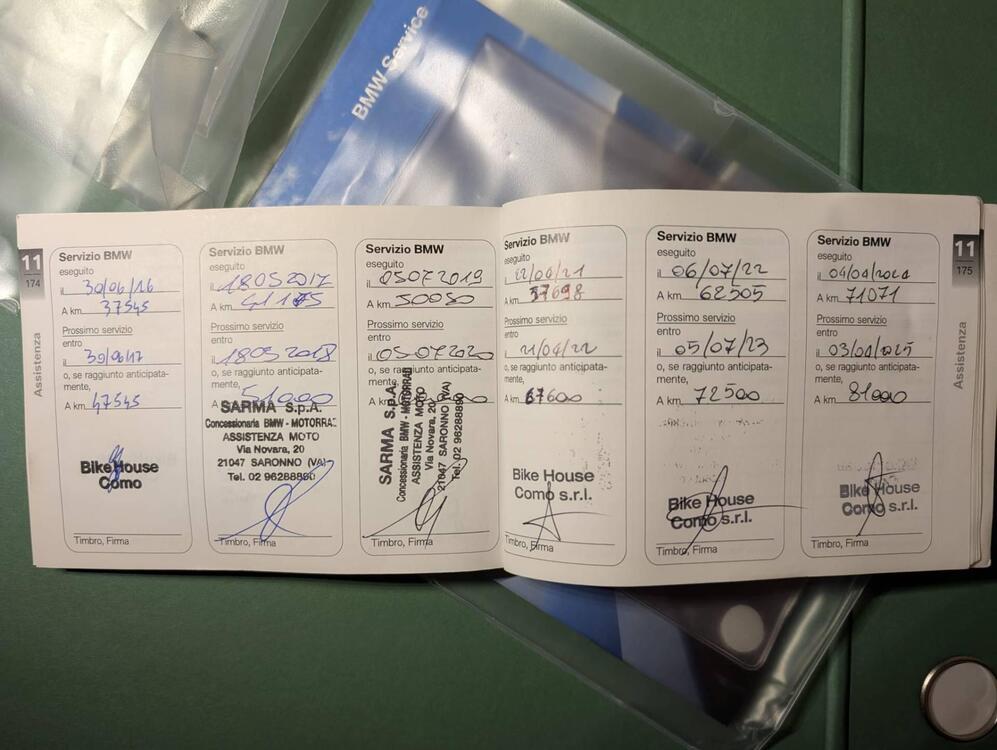 BMW Service
11
174
Assistenza
Servizio BMW
eseguito
il 30/06/16
A km 37545
Prossimo servizio
entro
il 30/06/17
o, se raggiunto anticipata-
mente,
A km 47545
Bike House
Como
Timbro, Firma
Servizio BMW
eseguito
il 18 05 2017
A km
Prossimo servizio
entro
il 18 05 2018
o, se raggiunto anticipata-
mente,
A km 51000
SARMA S.p.A.
Concessionaria BMW - MOTORRAD
ASSISTENZA MOTO
Via Novara, 20
21047 SARONNO (VA)
Tel. 02 96288890
Timbro, Firma
Servizio BMW
eseguito
il 05 07 2019
A km 50080
Prossimo servizio
entro
il 05 07 2020
o, se raggiunto anticipata-
mente,
A km
SARMA S.p.A.
Concessionaria BMW - MOTORRAD
ASSISTENZA MOTO
Via Novara, 20
21047 SARONNO (VA)
Tel. 02 96288890
Timbro, Firma
Servizio BMW
eseguito
il 22/04/21
A km 57698
Prossimo servizio
entro
il 21/04/22
o, se raggiunto anticipata-
mente,
A km 67600
Bike House
Como s.r.l.
Timbro, Firma
Servizio BMW
eseguito
il 06/07/22
A km 62505
Prossimo servizio
entro
il 05/07/23
o, se raggiunto anticipata-
mente,
A km 72500
Bike House
Como s.r.l.
Timbro, Firma
Servizio BMW
eseguito
il 04/04/2024
A km 71071
Prossimo servizio
entro
il 03/04/2025
o, se raggiunto anticipata-
mente,
A km 81000
Bike House
Como s.r.l.
Timbro, Firma
11
175
Assistenza